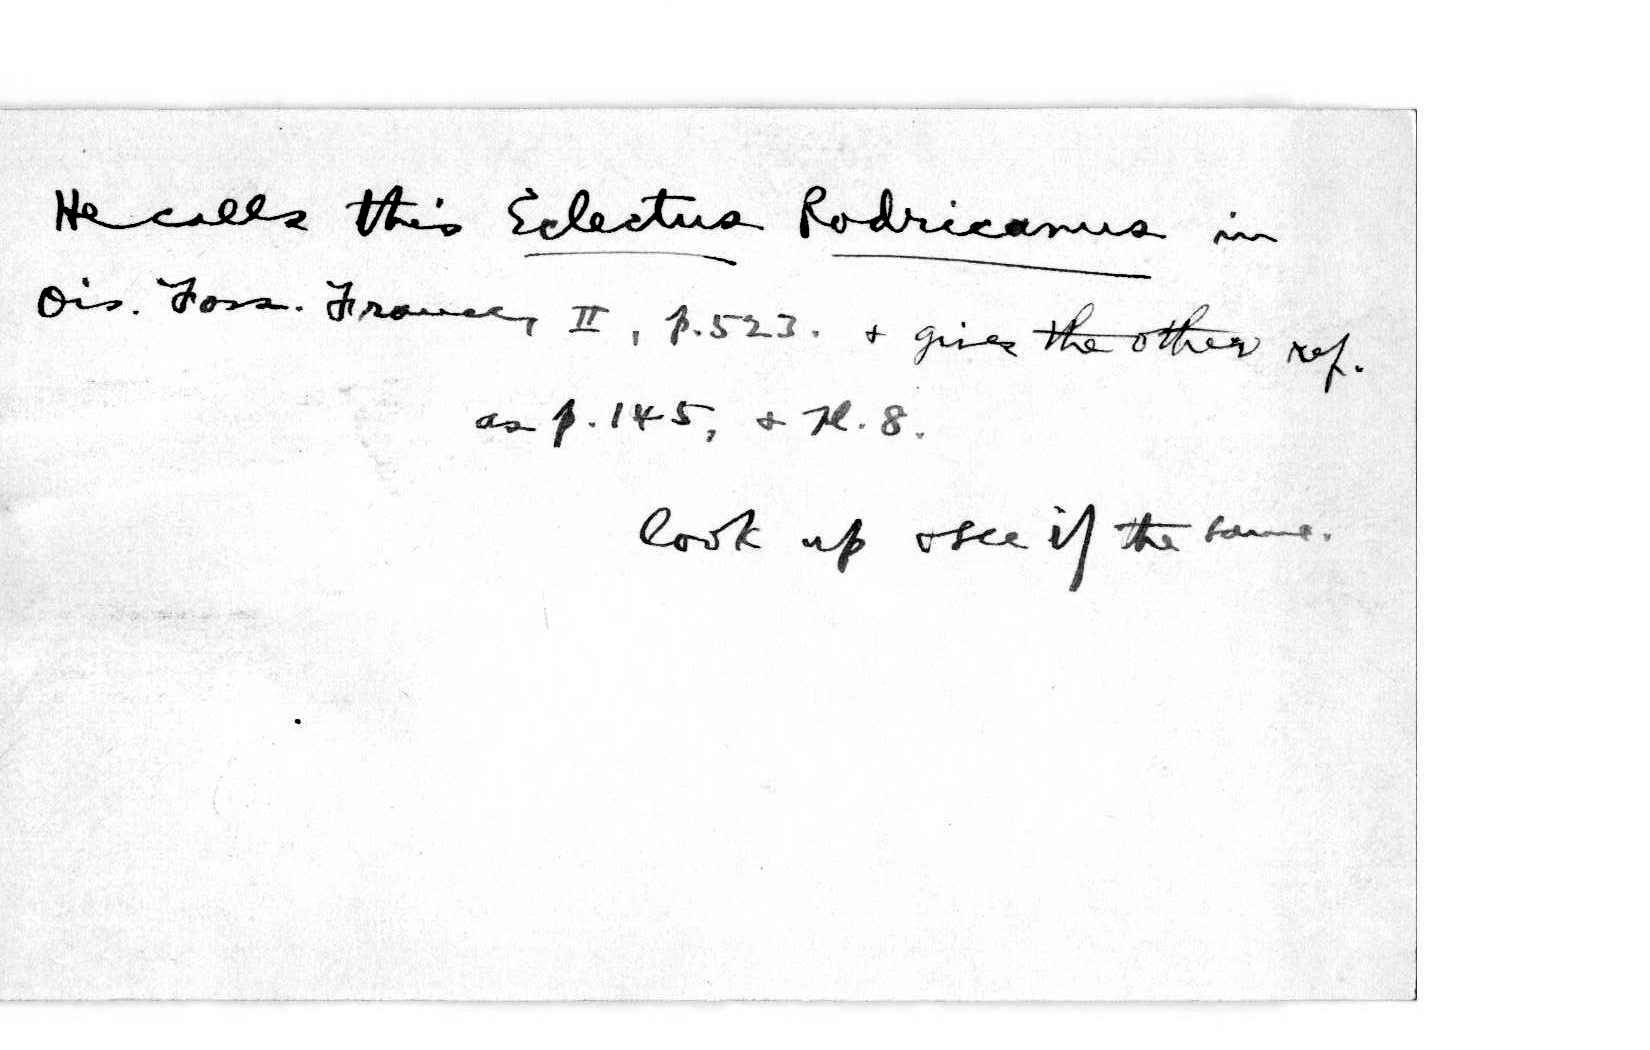 He calls this Eclectus Rodricanus in
Ois. Foss. France, II, p.523. + gives the other ref.
as p.145, + Pl. 8.
look up + see if the same.